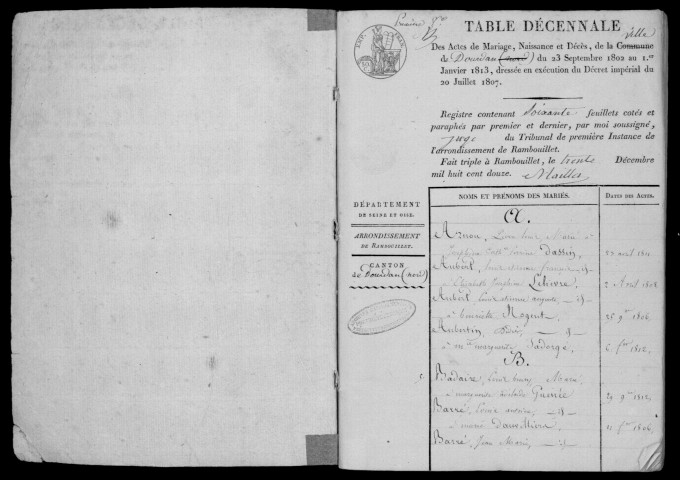 TABLE DÉCENNALE
Ville
Des Actes de Mariage, Naissance et Décès, de la Commune
de Dourdan (nord) du 23 Septembre 1802 au 1.er
Janvier 1813, dressée en exécution du Décret impérial du
20 Juillet 1807.
Registre contenant Soixante feuillets cotés et
paraphés par premier et dernier, par moi soussigné,
Juge du Tribunal de première Instance de
l'arrondissement de Rambouillet.
Fait triple à Rambouillet, le trente Décembre
mil huit cent douze. Mailles
DÉPARTEMENT
DE SEINE ET OISE.
ARRONDISSEMENT
DE RAMBOUILLET.
CANTON
de Dourdan (nord)
NOMS ET PRÉNOMS DES MARIÉS. DATES DES ACTES.
A.
Marié à
Josephine Dassin,
Aubert,
à Elizabeth Josephine Lelievre, 2 Avril
Aubert, Louis etienne auguste, id
à henriette Nogent, 25 9bre 1806.
Aubertin, id
à marguerite Sadorge, 6 1812.
B.
Badaire, Louis Marié
à marguerite Guenée 29 9bre 1812
Barré, Louis antoine, id
à marie 1806.
Barré, Jean Marie, id